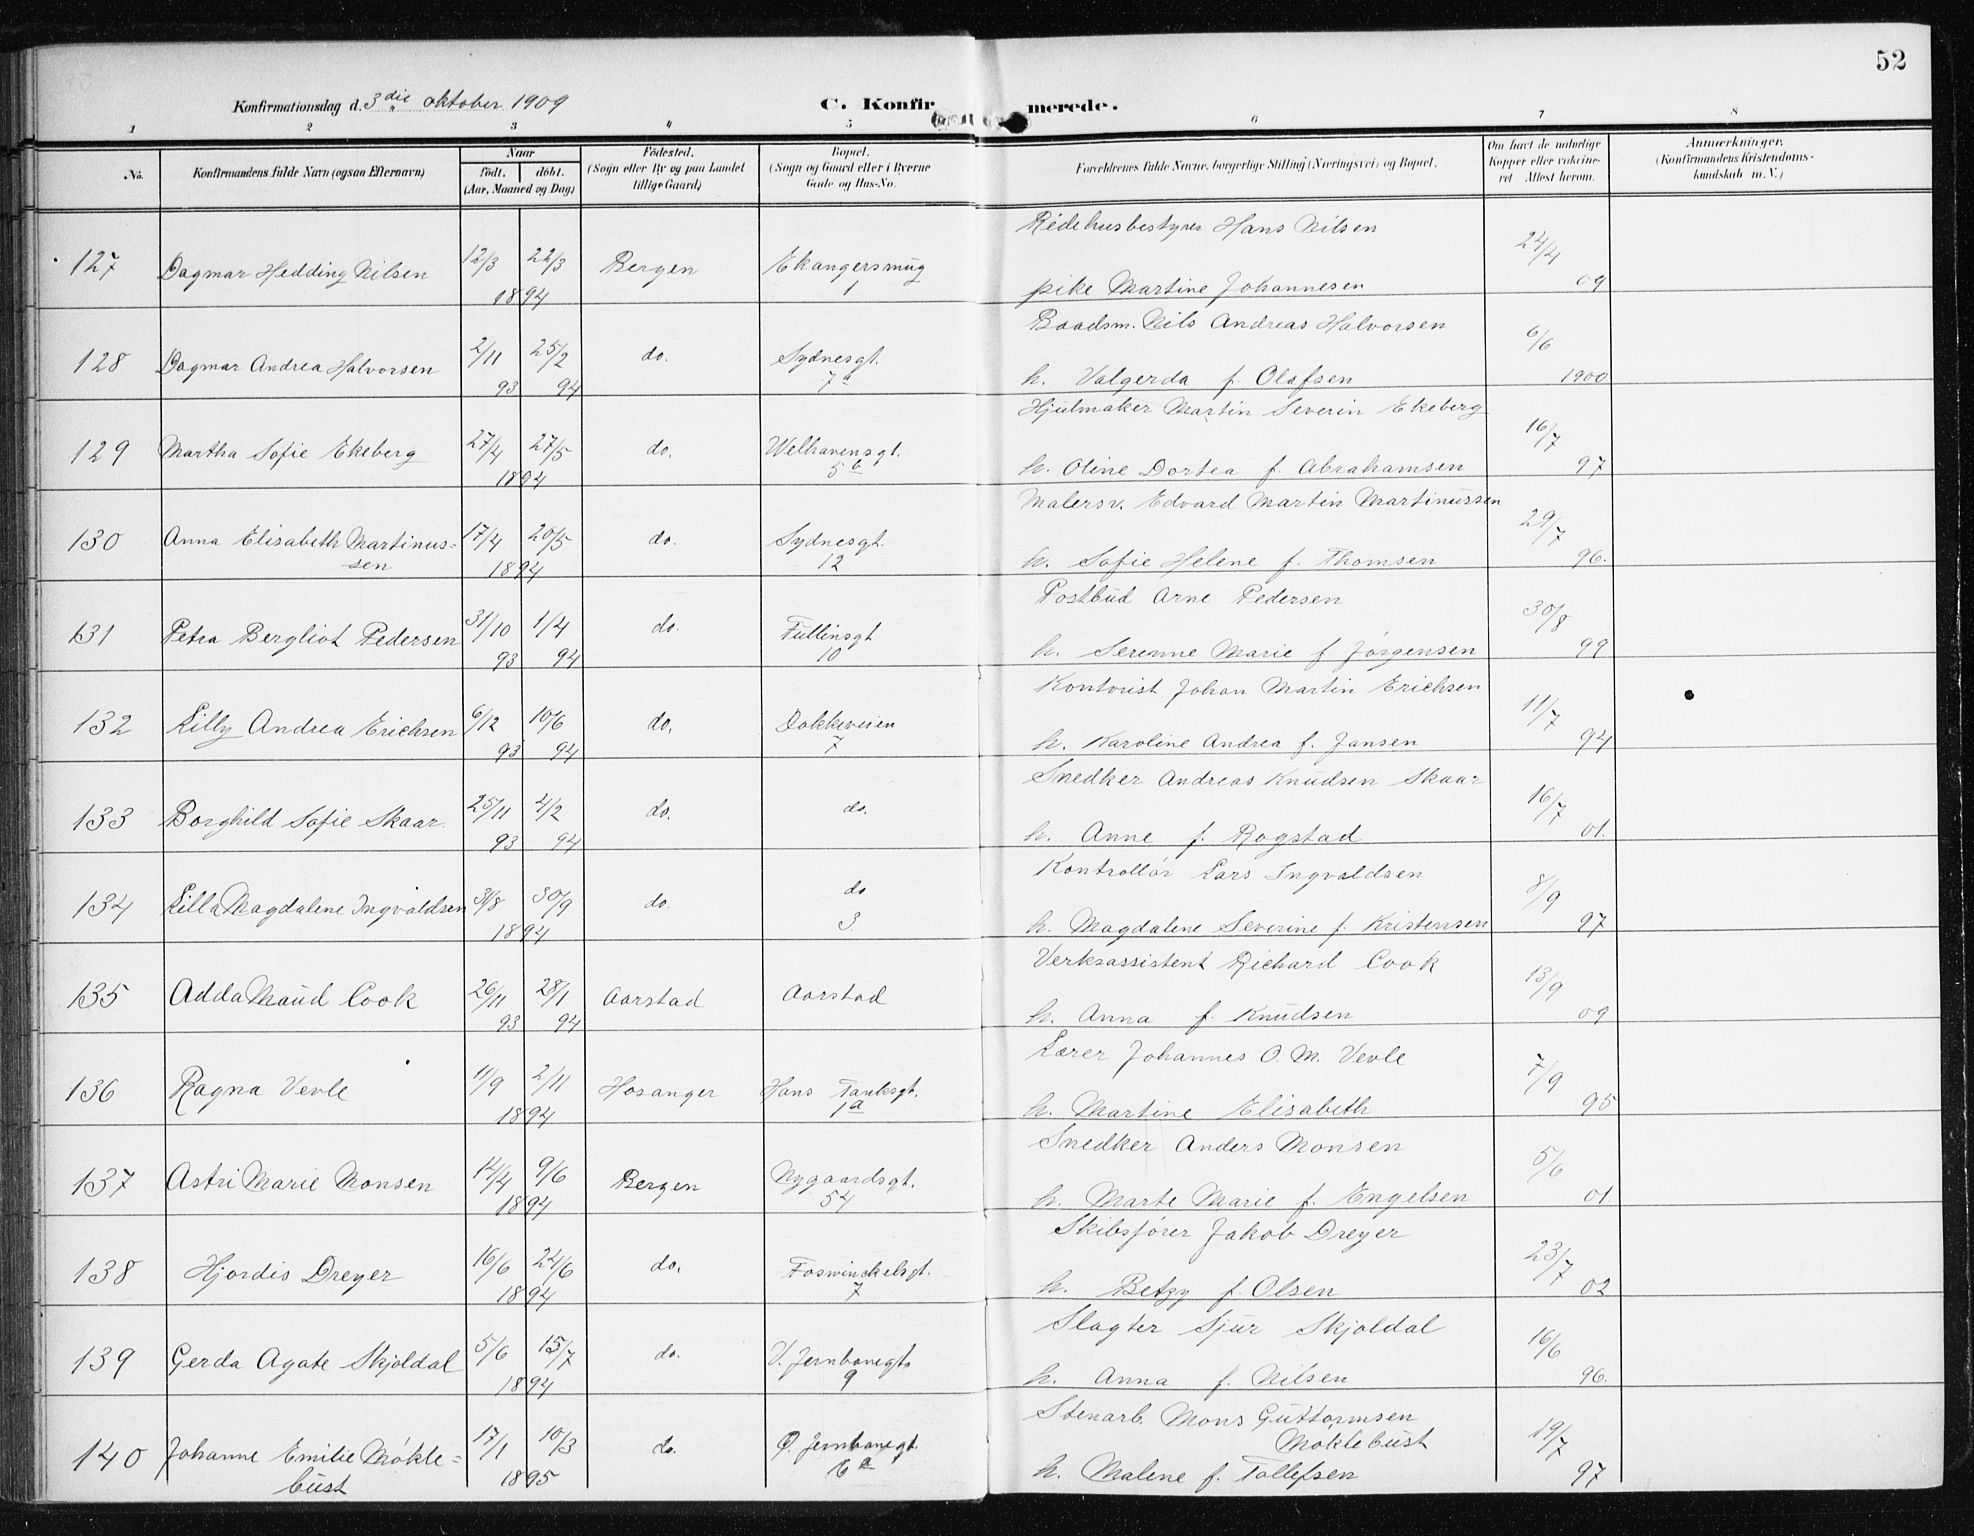 52
Konfirmationsdag d. 3die oktober 1909 C. Konfirmerede.
1 2 3 4 5 6 7 8
No. Konfirmandens fulde Navn (ogsaa Efternavn) Naar født. døbt. (Aar, Maaned og Dag) Fødested. (Sogn eller By og paa Landet tillige Gaard) Bopæl. (Sogn og Gaard eller i Byerne Gade og Hus-No. Forældrenes fulde Navne, borgerlige Stilling (Næringsvei) og Bopæl. Om havt de naturlige Kopper eller vakcineret Attest herom. Anmærkninger. (Konfirmandens Kristendomskundskab m. V.)
Ridehusbestyrer Hans Nilsen
127 Dagmar Hedding Nilsen 12/3 22/3 Bergen Ekangersmug 24/4
1894 1 pike Martine Johannesen 09
Baadsm. Nils Andreas Halvorsen
128 Dagmar Andrea Halvorsen 2/11 25/2 do. Sydnesgt. 6/6
93 94 7a h. Valgerda f. Olafsen 1900
Hjulmaker Martin Severin Ekeberg
129 Martha Sofie Ekeberg 27/4 27/5 do. Welhavensgt. 16/7
1894 5b h. Oline Dortea f. Abrahamsen 97
Malersv. Edvard Martin Martinussen
130 Anna Elisabeth Martinus- 17/4 20/5 do. Sydnesgt. 29/7
sen 1894 12 h. Sofie Helene f. Thomsen 96.
Postbud Arne Pedersen
131 Petra Bergliot Pedersen 31/10 1/4 do. Tullinsgt 30/8
93 94 10 h. Serenne Marie f Jørgensen 99
Kontorist Johan Martin Erichsen
132 Lilly Andrea Erichsen 6/12 10/6 do. Dokkeveien 11/7
93 94 7 h. Karoline Andrea f. Jansen 94
Snedker Andreas Knudsen Skaar
133 Borghild Sofie Skaar. 25/11 4/2 do. do. 16/7
93 94 h. Anne f. Rogstad 01.
Kontrollør Lars Ingvaldsen
134 Lilla Magdalene Ingvaldsen 31/8 30/9 do. do 8/9
1894 3. h. Magdalene Severine f. Kristensen 97
Verksassistent Richard Cook
135 Adda Maud Cook 26/11 28/1 Aarstad Aarstad 13/9
93 94 h. Anna f. Knudsen 09
Lærer Johannes O. M. Vevle
136 Ragna Vevle 11/9 2/11 Hosanger Hans Tanksgt. 7/9
1894 1a h. Martine Elisabeth 95
Snedker Anders Monsen
137 Astri Marie Monsen 14/4 9/6 Bergen Nygaardsgt. 5/6
1894 54 h. Marte Marie f. Engelsen 01
Skibsfører Jakob Dreyer
138 Hjordis Dreyer 16/6 24/6 do. Foswinckelsgt. 23/7
1894 7 h. Betzy f. Olsen 02
Slagter Sjur Skjoldal
139 Gerda Agate Skjoldal 5/6 15/7 do. V. Jernbanegt. 16/6
1894 9 h. Anna f. Nilsen 96.
Stenarb. Mons Guttormsen
Møklebust
140 Johanne Emilie Møkle- 17/1 10/3 do. Ø. Jernbanegt. 19/7
bust 1895 6a h. Malene f. Tollefsen 97